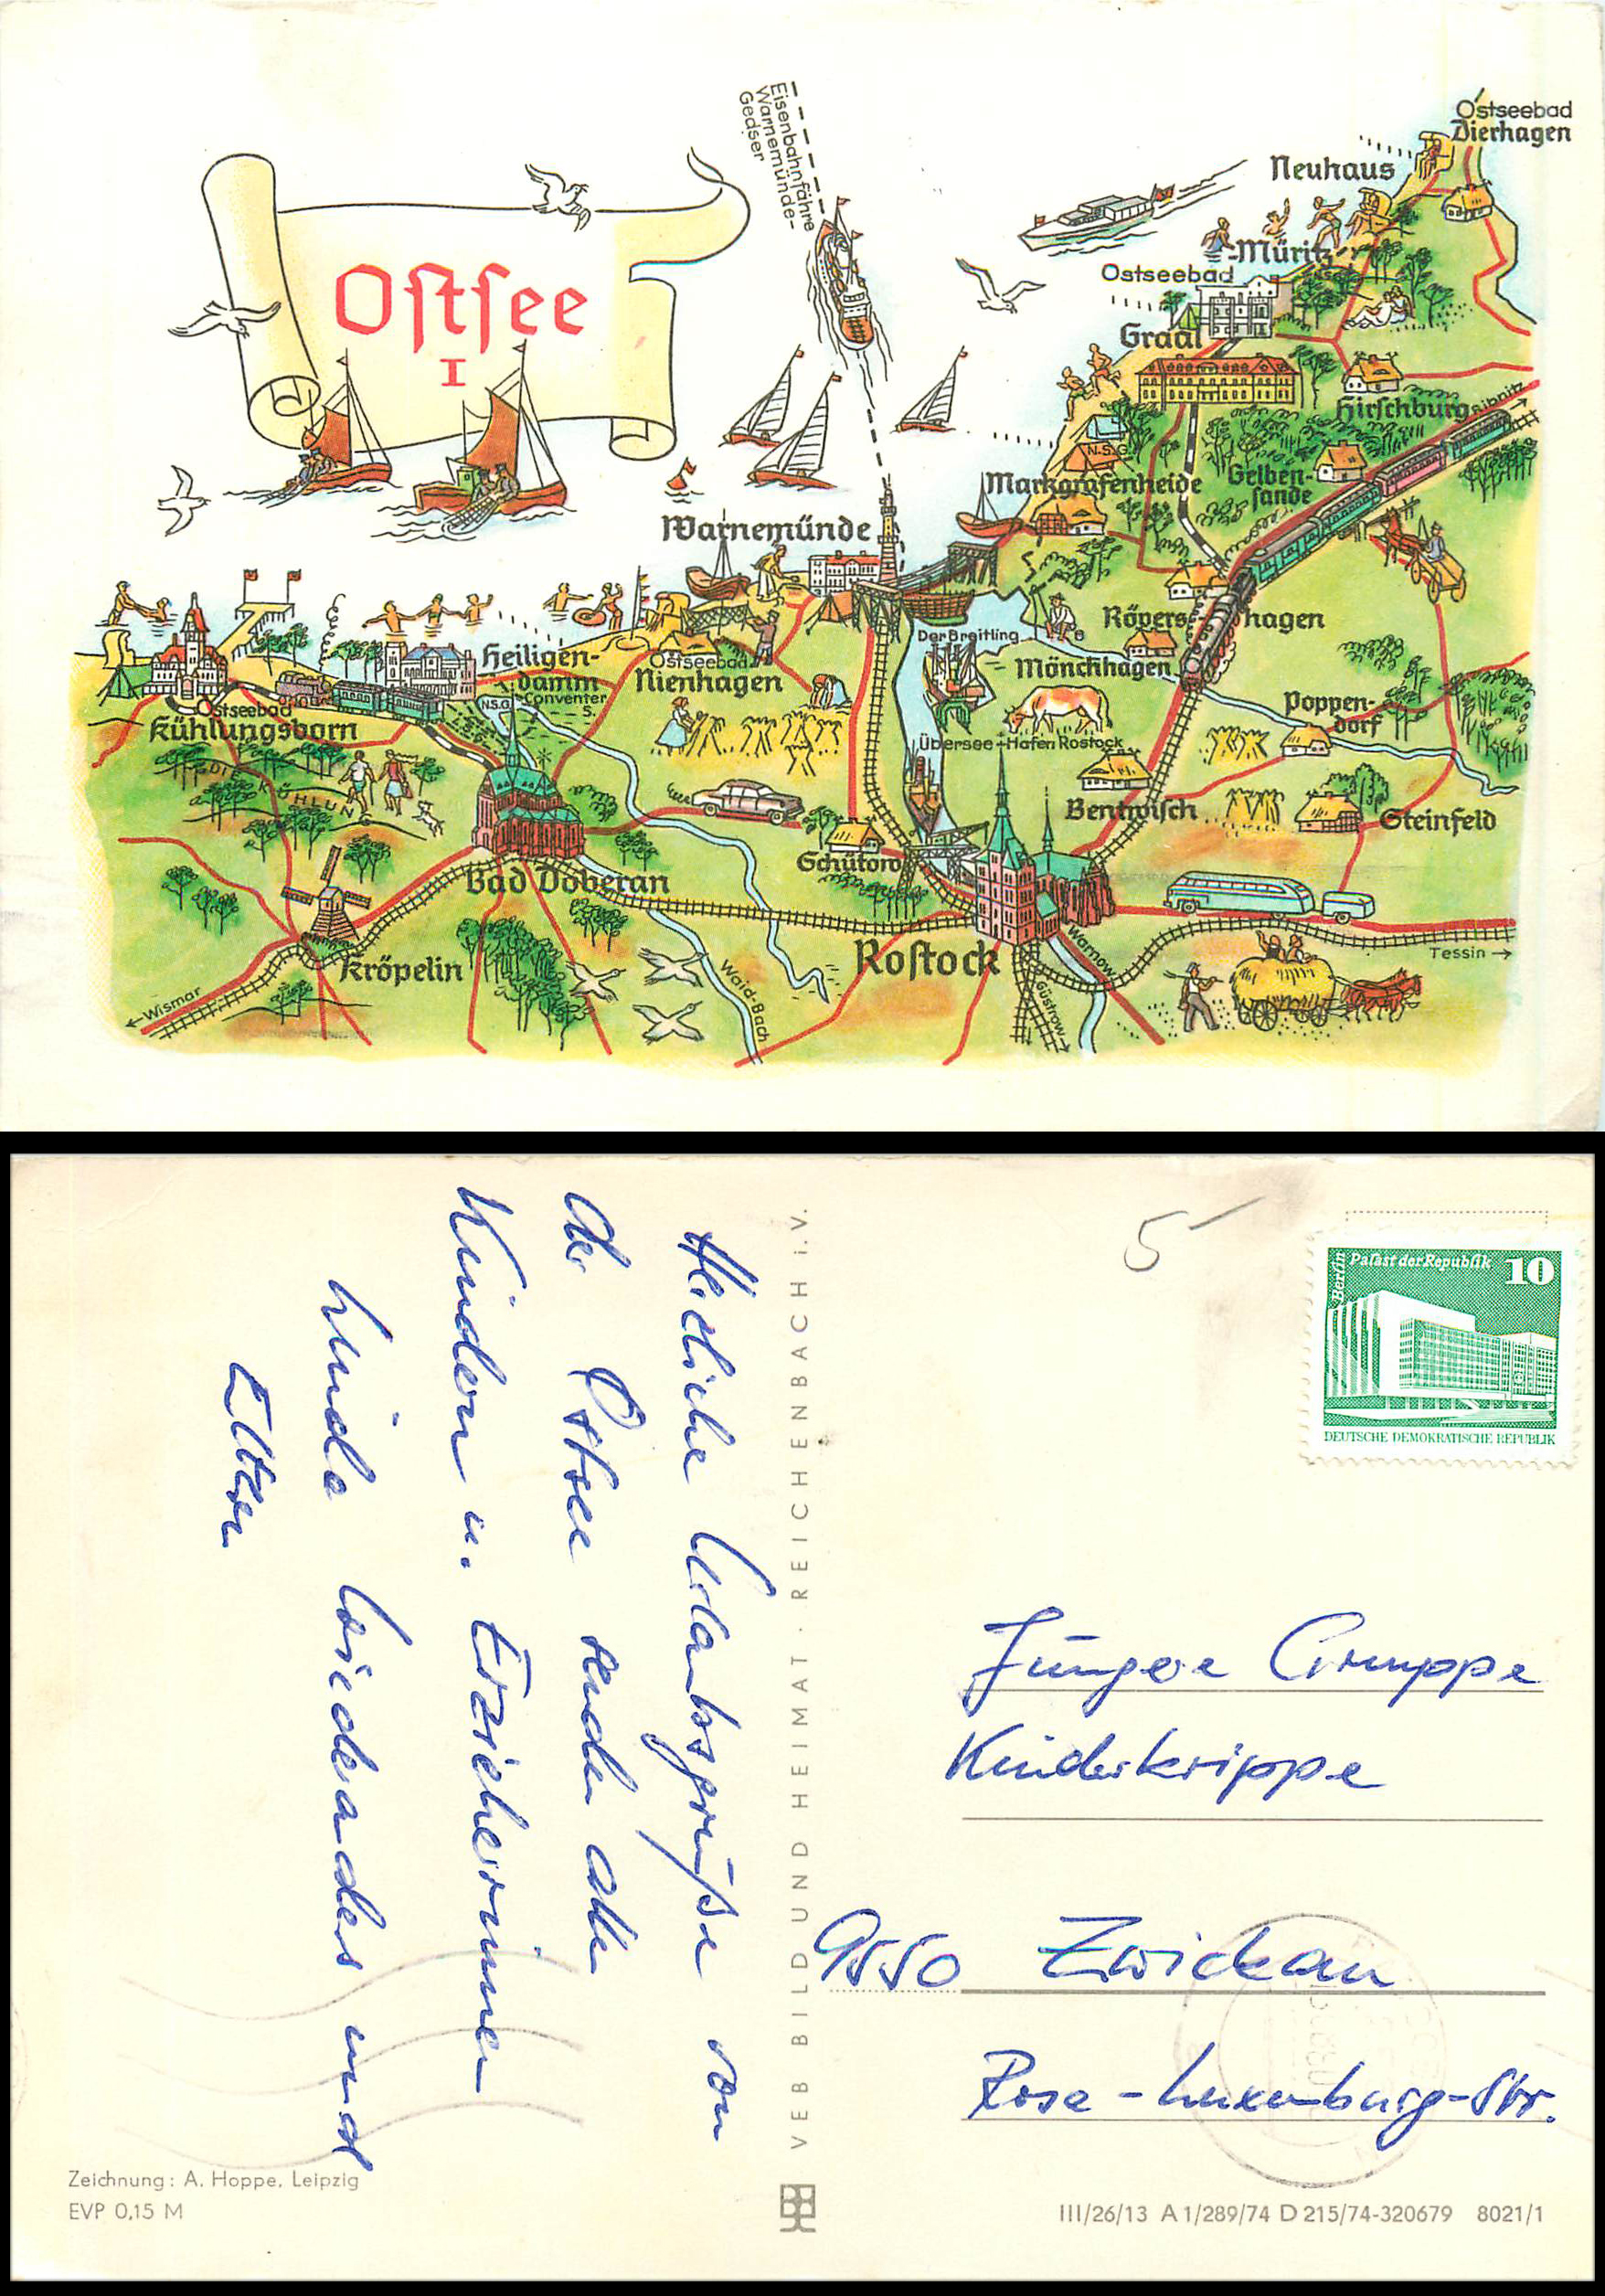 Ostsee
I
Eisenbahnfähre
Warnemünde-
Gedser
Ostseebad
Dierhagen
Neuhaus
-Müritz
Ostseebad
Graal
Hirschburg
Ribnitz
N.S.G.
Gelben-
sande
Markgrafenheide
Warnemünde
Rövers-hagen
Der Breitling
Mönchhagen
Heiligen-
damm
Conventer
S.
N.S.G.
Ostseebad
Nienhagen
Ostseebad
Kühlungsborn
Poppen-
dorf
Übersee-Hafen Rostock
DIE
KÜHLUNG
Bentwisch
Steinfeld
Schutow
Bad Doberan
Rostock
Warnow
Tessin
Kröpelin
Waid-Bach
Güstrow
Wismar
5
Berlin
Palast der Republik 10
DEUTSCHE DEMOKRATISCHE REPUBLIK
Herzliche Urlaubsgrüße von
der Ostsee senden allen
Kindern u. Erzieherinnen
Eltern
VEB BILD UND HEIMAT · REICHENBACH i.V.
Jüngere Gruppe
Kinderkrippe
9550 Zwickau
Rosa-Luxemburg-Str.
Zeichnung: A. Hoppe, Leipzig
EVP 0,15 M
III/26/13 A 1/289/74 D 215/74-320679 8021/1